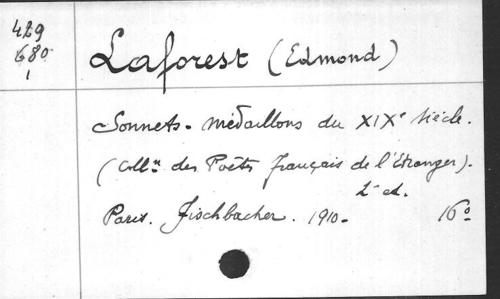 429
680
1
Laforest (Edmond)
Sonnets-médaillons du XIXe siècle.
(Colln des Poètes français de l'Etranger).
2e ed.
Paris. Fischbacher. 1910. 16o